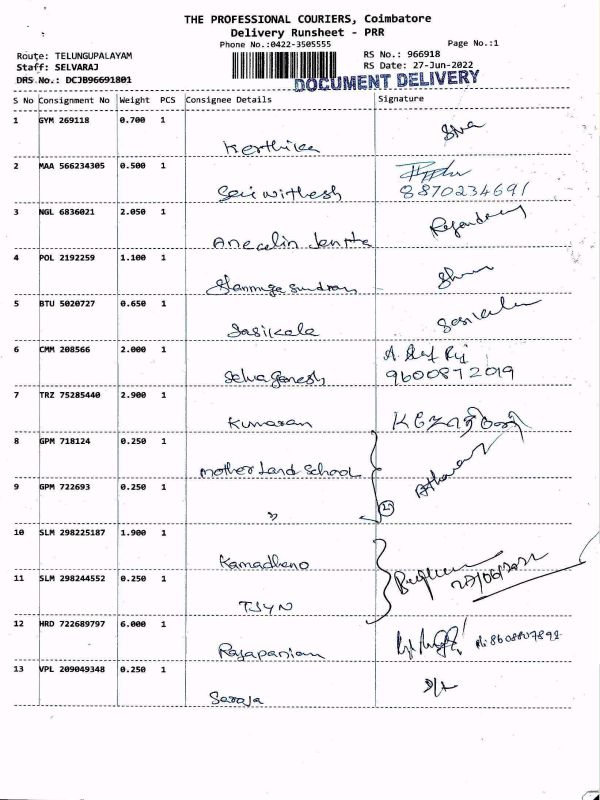 THE PROFESSIONAL COURIERS, Coimbatore
Delivery Runsheet - PRR
Phone No.:0422-3505555
Page No.:1
Route: TELUNGUPALAYAM
RS No.: 966918
Staff: SELVARAJ
RS Date: 27-Jun-2022
DRS No.: DCJB96691801
DOCUMENT DELIVERY
S No Consignment No Weight PCS Consignee Details Signature
1 GYM 269118 0.700 1 Kerthika Siva
2 MAA 566234305 0.500 1 Sai withesh
8870234691
3 NGL 6836021 2.050 1 Anecalin Jenita
4 POL 2192259 1.100 1 Shanmuga sundram
5 BTU 5020727 0.650 1 Sasikala Sasikala
6 CMM 208566 2.000 1 Selva Ganesh
9600872019
7 TRZ 75285440 2.900 1 Kumaran
8 GPM 718124 0.250 1 mother Land School
9 GPM 722693 0.250 1 "
10 SLM 298225187 1.900 1 Kamadheno
27/06/2022
11 SLM 298244552 0.250 1
12 HRD 722689797 6.000 1 Rajapaniam
13 VPL 209049348 0.250 1 Saroja